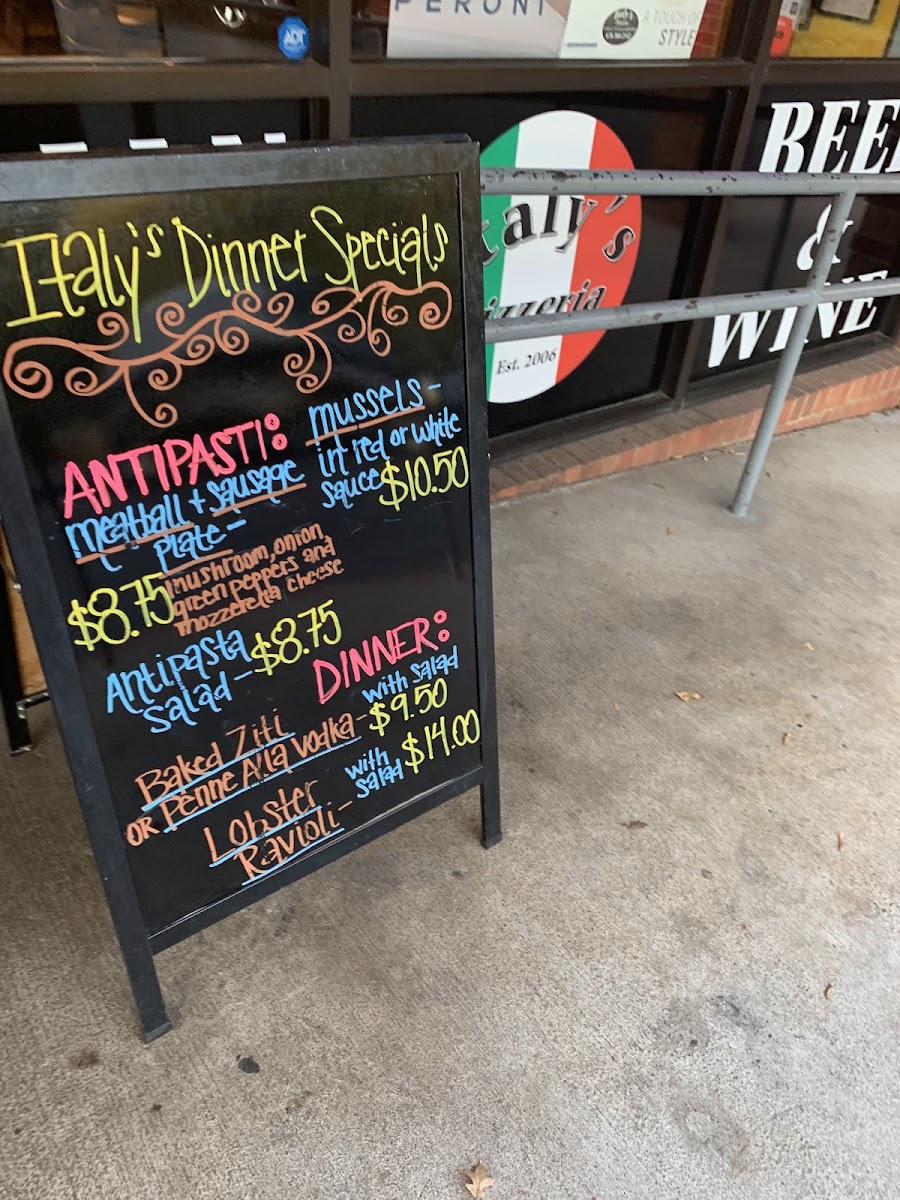 PERONI
A TOUCH OF
STYLE
ADT
Italy's Dinner Specials
ANTIPASTI:
meatball + sausage
plate-
$8.75
mushroom, onion,
green peppers and
mozzerella cheese
mussels-
in red or white
sauce $10.50
Antipasta
salad - $8.75
DINNER:
Baked Ziti
OR Penne Alla Vodka-
with salad
$9.50
Lobster
Ravioli-
with
salad
$14.00
taly's
izzeria
Est. 2006
BEE
&
WINE